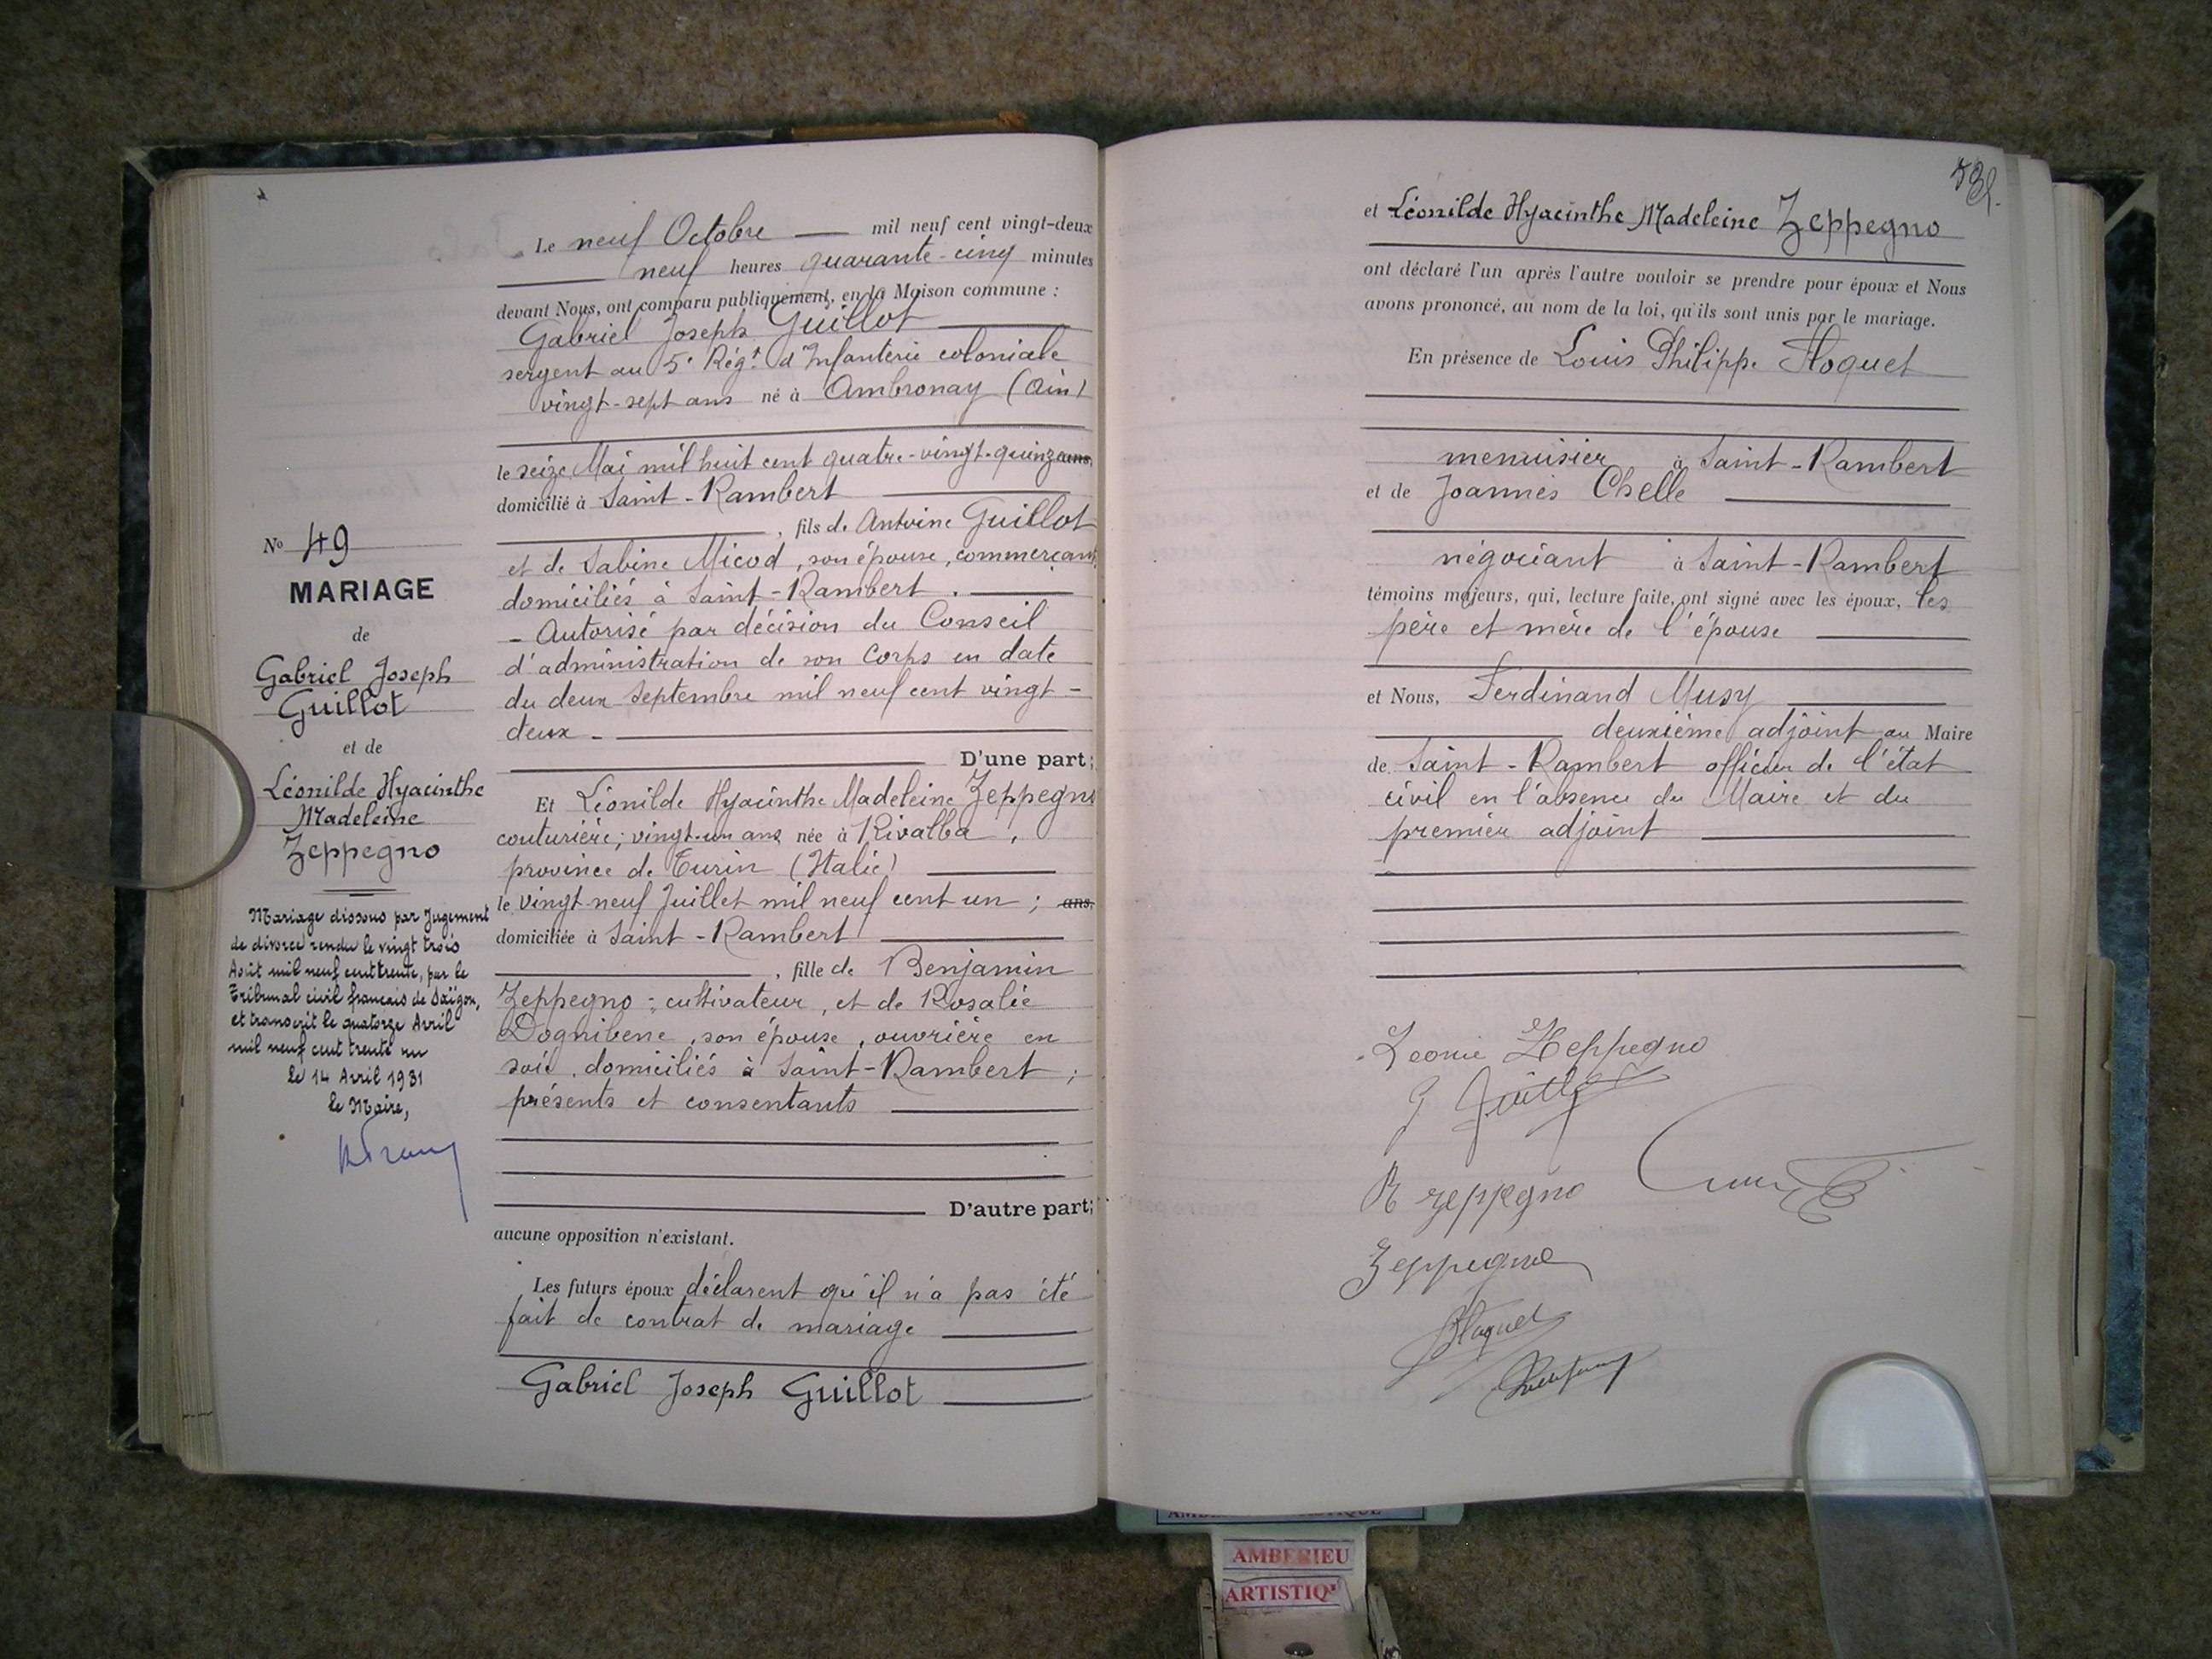 N° 49
MARIAGE
de
Gabriel Joseph
Guillot
et de
Léonilde Hyacinthe
Madeleine
Zeppegno
Mariage dissous par Jugement
de divorce rendu le vingt trois
Août mil neuf cent trente, par le
Tribunal civil français de Saïgon,
et transcrit le quatorze Avril
mil neuf cent trente un
Le 14 Avril 1931
Le Maire,
Le neuf Octobre mil neuf cent vingt-deux
neuf heures quarante-cinq minutes
devant Nous, ont comparu publiquement, en la Maison commune :
Gabriel Joseph Guillot
sergent au 5e Régt d'Infanterie coloniale
vingt-sept ans né à Ambronay (Ain)
le seize Mai mil huit cent quatre-vingt-quinze ans,
domicilié à Saint-Rambert
, fils de Antoine Guillot
et de Sabine Micod, son épouse, commerçants,
domiciliés à Saint-Rambert.
- Autorisé par décision du Conseil
d'administration de son Corps en date
du deux Septembre mil neuf cent vingt-
deux -
D'une part;
Et Léonilde Hyacinthe Madeleine Zeppegno
couturière; vingt-un ans née à Rivalba,
province de Turin (Italie)
le vingt-neuf Juillet mil neuf cent un ; ans,
domiciliée à Saint-Rambert
, fille de Benjamin
Zeppegno, cultivateur, et de Rosalie
Dognibene, son épouse, ouvrière en
soie, domiciliés à Saint-Rambert ;
présents et consentants
D'autre part;
aucune opposition n'existant.
Les futurs époux déclarent qu'il n'a pas été
fait de contrat de mariage
Gabriel Joseph Guillot
et Léonilde Hyacinthe Madeleine Zeppegno
ont déclaré l'un après l'autre vouloir se prendre pour époux et Nous
avons prononcé, au nom de la loi, qu'ils sont unis par le mariage.
En présence de Louis Philippe Floquet
menuisier à Saint-Rambert
et de Joannès Chelle
négociant à Saint-Rambert
témoins majeurs, qui, lecture faite, ont signé avec les époux, les
père et mère de l'épouse
et Nous, Ferdinand Musy
deuxième adjoint au Maire
de Saint-Rambert officier de l'état
civil en l'absence du Maire et du
premier adjoint
Leonie Zeppegno
G Guillot
R Zeppegno
Zeppegno
Floquet
AMBERIEU
ARTISTIQ